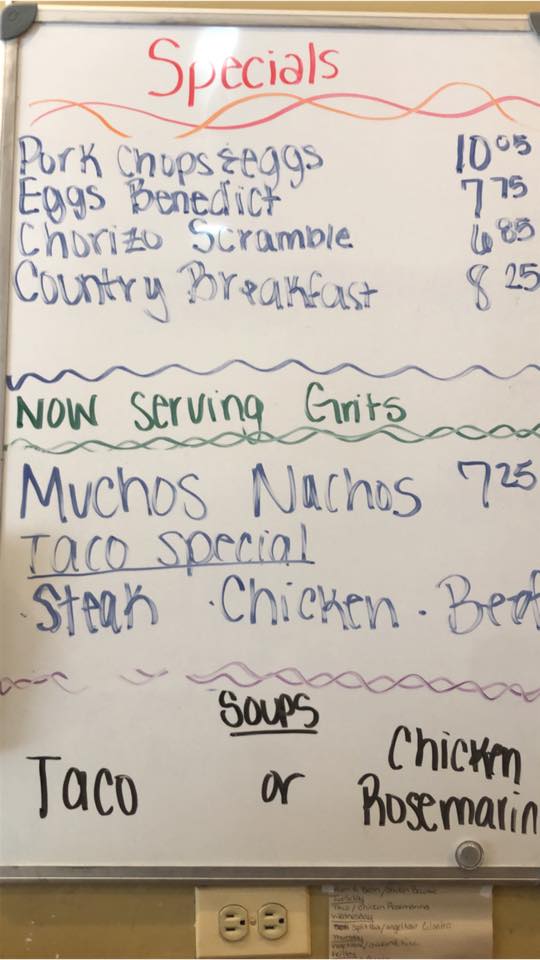 Specials
Pork Chops & eggs 10 05
Eggs Benedict 7 75
Chorizo Scramble 6 85
Country Breakfast 8 25
NOW Serving Grits
Muchos Nachos 7 25
Taco Special
· Steak · Chicken · Beef
Soups
Taco or Chicken Rosemarin
Tuesday
Taco / Chicken
Wednesday
Thursday